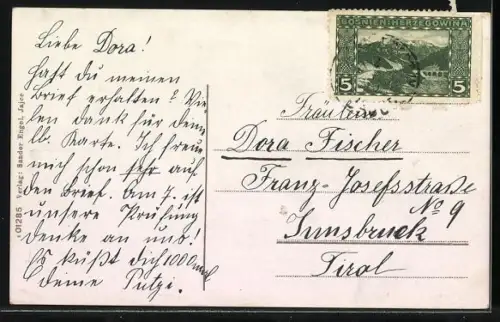 Liebe Dora!
Hast du meinen
Brief erhalten? Vie-
len Dank für deine
lb. Karte. Ich freue
mich schon sehr auf
den Brief. Am 7. ist
unsere Prüfung
denke an uns!
Es küßt dich 1000mal
deine Putzi.
01285 Verlag: Sander Engel, Jajce
BOSNIEN-HERZEGOWINA
5 5
Fräulein
Dora Fischer
Franz-Josefsstraße
No 9
Innsbruck
Tirol